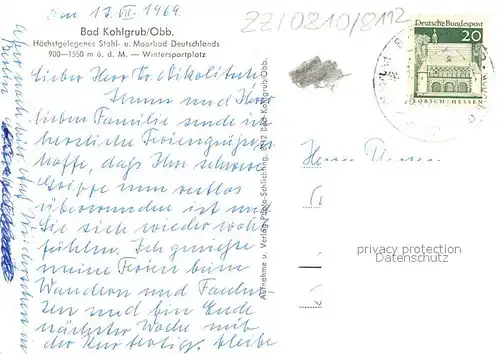 am 17. VII. 1969
ZZ/0210/8112
Bad Kohlgrub/Obb.
Höchstgelegenes Stahl- u. Moorbad Deutschlands
900—1550 m ü. d. M. — Wintersportplatz
Lieber Herr Dr.
Ihnen und Ihrer
lieben Familie sende ich
herzliche Feriengrüsse,
hoffe, dass Ihre schwere
Grippe nun restlos
überwunden ist und
Sie sich wieder wohl
fühlen. Ich genieße
meine Ferien beim
Wandern und
und bin Ende
nächster Woche mit
der Kur fertig, bleibe
aber noch hier. Auf Wiedersehen in
Berlin
Aufnahme u. Verlag Photo-Schlichting, 8112 Bad Kohlgrub/Obb.
Deutsche Bundespost
20
LORSCH/HESSEN
Herrn
privacy protection
Datenschutz